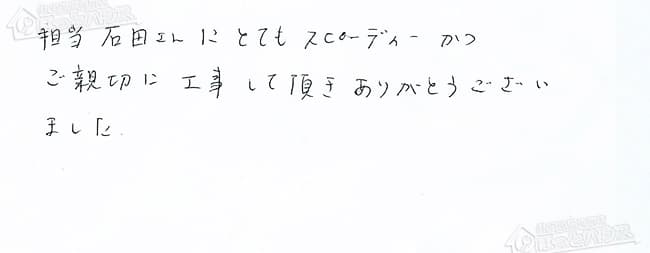 担当 石田さんにとてもスピーディーかつ
ご親切に工事して頂きありがとうござい
ました